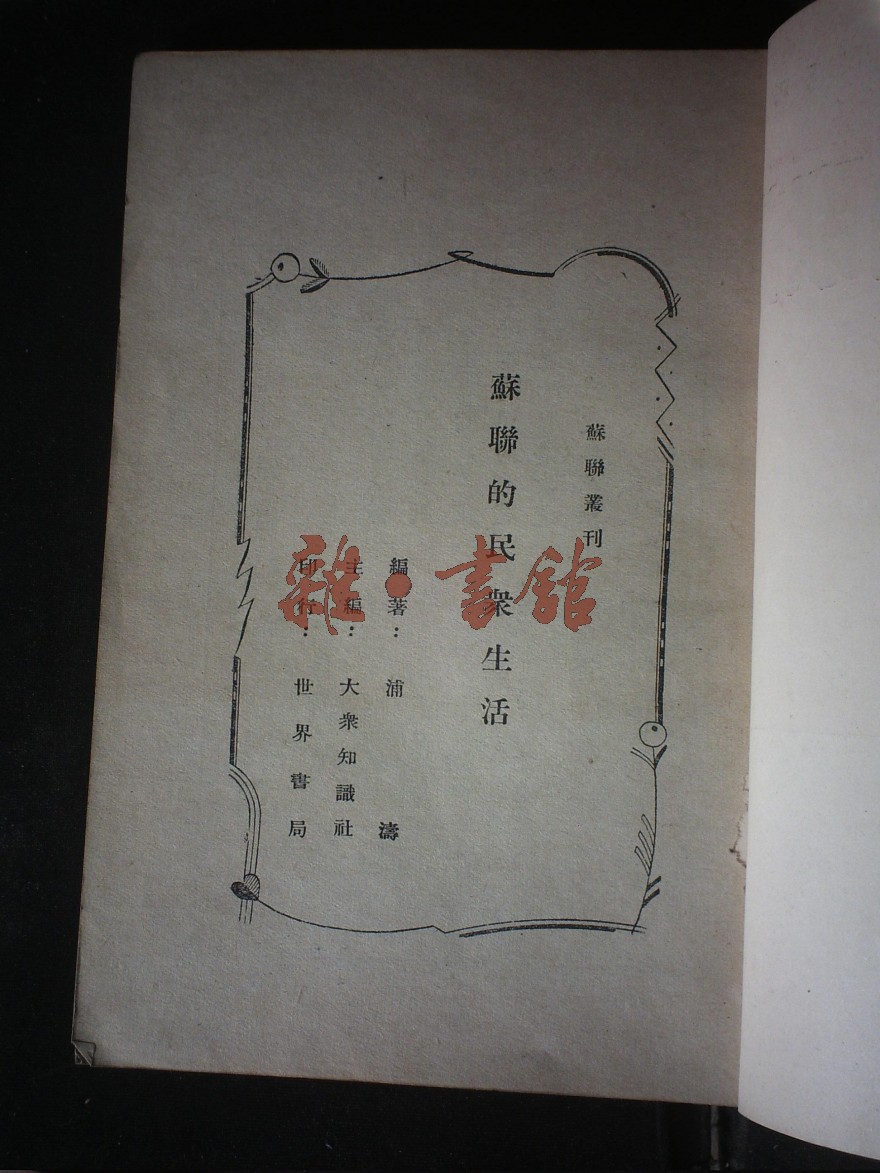 蘇聯叢刊
蘇聯的民衆生活
編著：浦濤
主編：大衆知識社
印行：世界書局
雜·書館